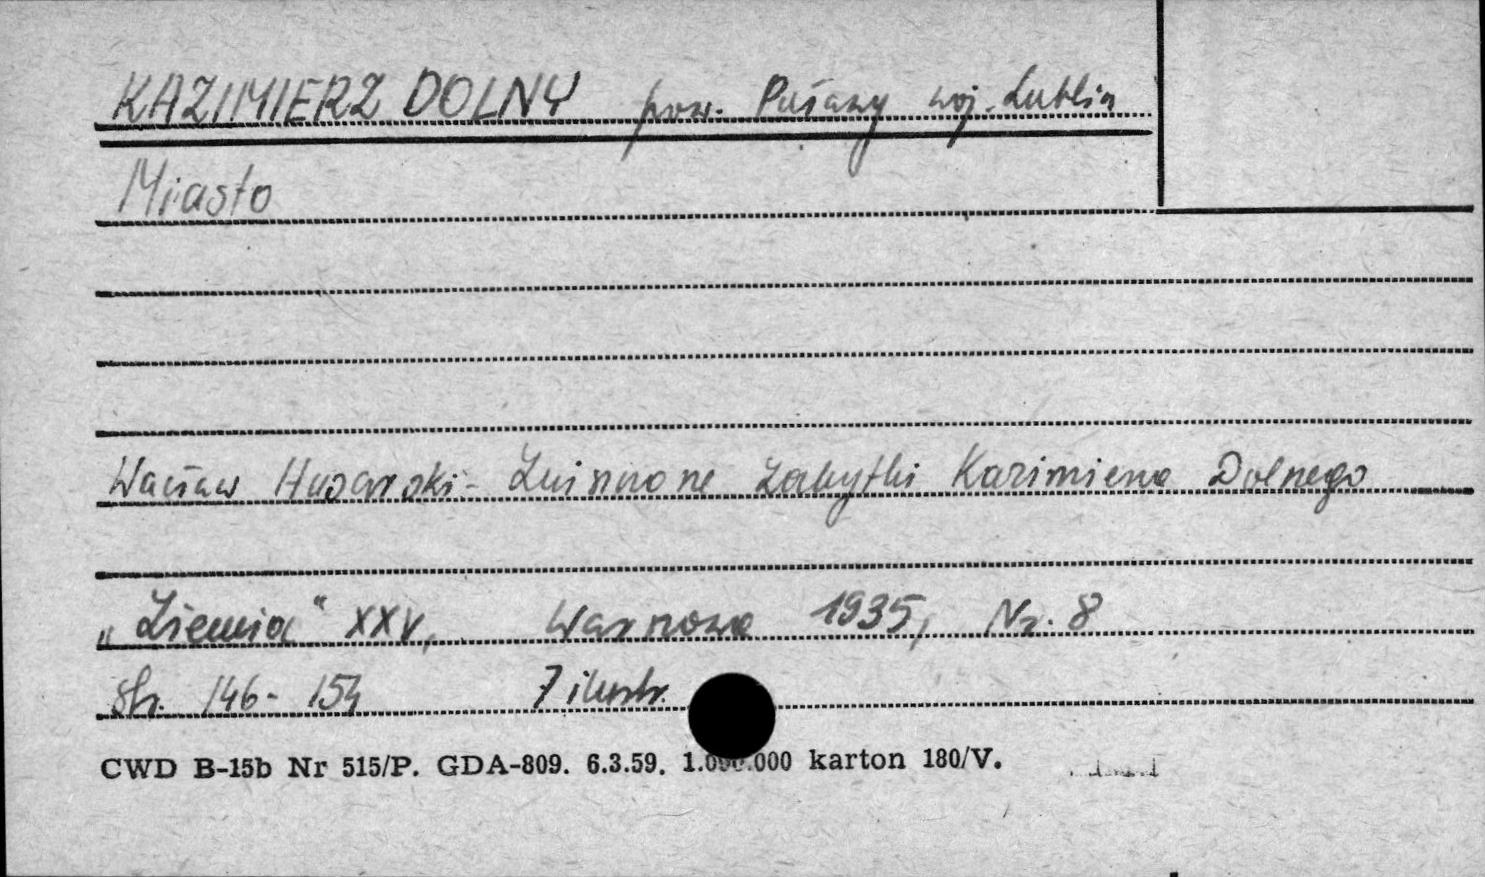 KAZIMIERZ DOLNY pow. Puławy woj. Lublin
Miasto
Wacław Husarski - Zniszczone zabytki Kazimierza Dolnego
„Ziemia" XXV, Warszawa 1935, Nr. 8
str. 146-154 7 ilustr.
CWD B-15b Nr 515/P. GDA-809. 6.3.59. 1.000.000 karton 180/V.